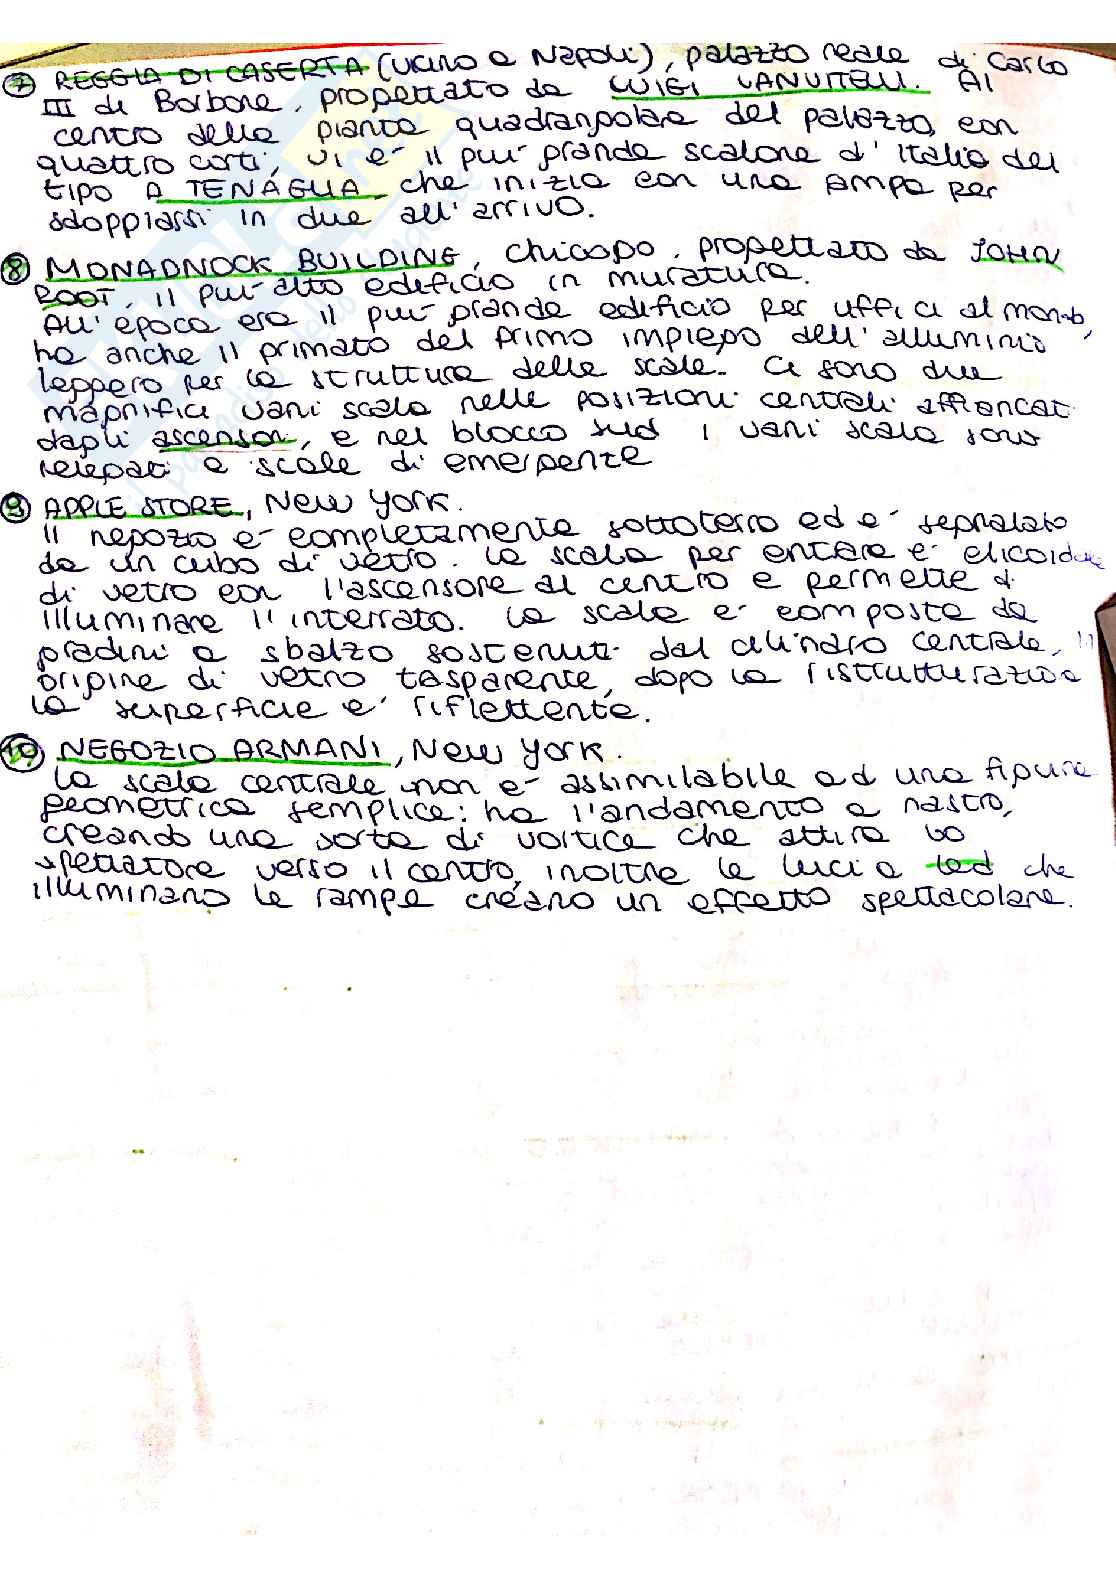 7 REGGIA DI CASERTA (vicino a Napoli), palazzo reale di Carlo
III di Borbone, progettato da LUIGI VANVITELLI. Al
centro della pianta quadrangolare del palazzo, con
quattro corti, vi è il più grande scalone d'Italia del
tipo A TENAGLIA, che inizia con una ampa per
sdoppiarsi in due all'arrivo.
8 MONADNOCK BUILDING, Chicago, progettato da JOHN
ROOT, il più alto edificio in muratura.
All'epoca era il più grande edificio per uffici al mondo,
ha anche il primato del primo impiego dell'alluminio
leggero per la struttura delle scale. Ci sono due
magnifici vani scala nelle posizioni centrali affiancati
dagli ascensori, e nel blocco sud i vani scala sono
relegati a scale di emergente
9 APPLE STORE, New York.
Il negozio è completamente sottoterra ed è segnalato
da un cubo di vetro. La scala per entrare è elicoidale
di vetro con l'ascensore al centro e permette di
illuminare l'interrato. La scala è composta da
gradini a sbalzo sostenuti dal cilindro centrale, in
origine di vetro trasparente, dopo la ristrutturazione
la superficie è riflettente.
10 NEGOZIO ARMANI, New York.
La scala centrale non è assimilabile ad una figura
geometrica semplice: ha l'andamento a nastro,
creando una sorta di vortice che attira lo
spettatore verso il centro, inoltre le luci a led che
illuminano le rampe creano un effetto spettacolare.